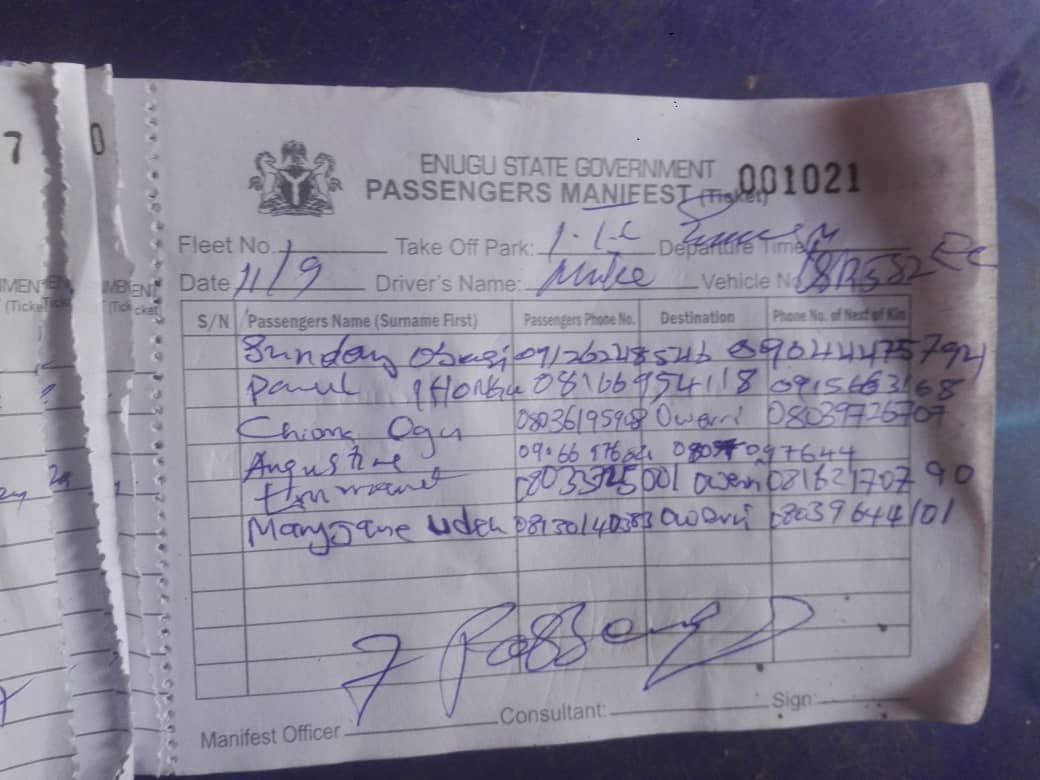 7
0
ENUGU STATE GOVERNMENT
PASSENGERS MANIFEST (Ticket) 001021
Fleet No. Take Off Park: I.T.C Departure Time
Date 11/9 Driver's Name: Mike Vehicle No
S/N Passengers Name (Surname First) Passengers Phone No. Destination Phone No. of Next of Kin
Sunday Obasi 09126248546
Paul 08166954118
Chioma Ogu 08036195908 Owerri 08039726707
Augustine
Emmanuel Owerri 08162170790
Maryjane Udeh 08130140383 Owerri 08039644101
7 Passengers
Manifest Officer Consultant: Sign: